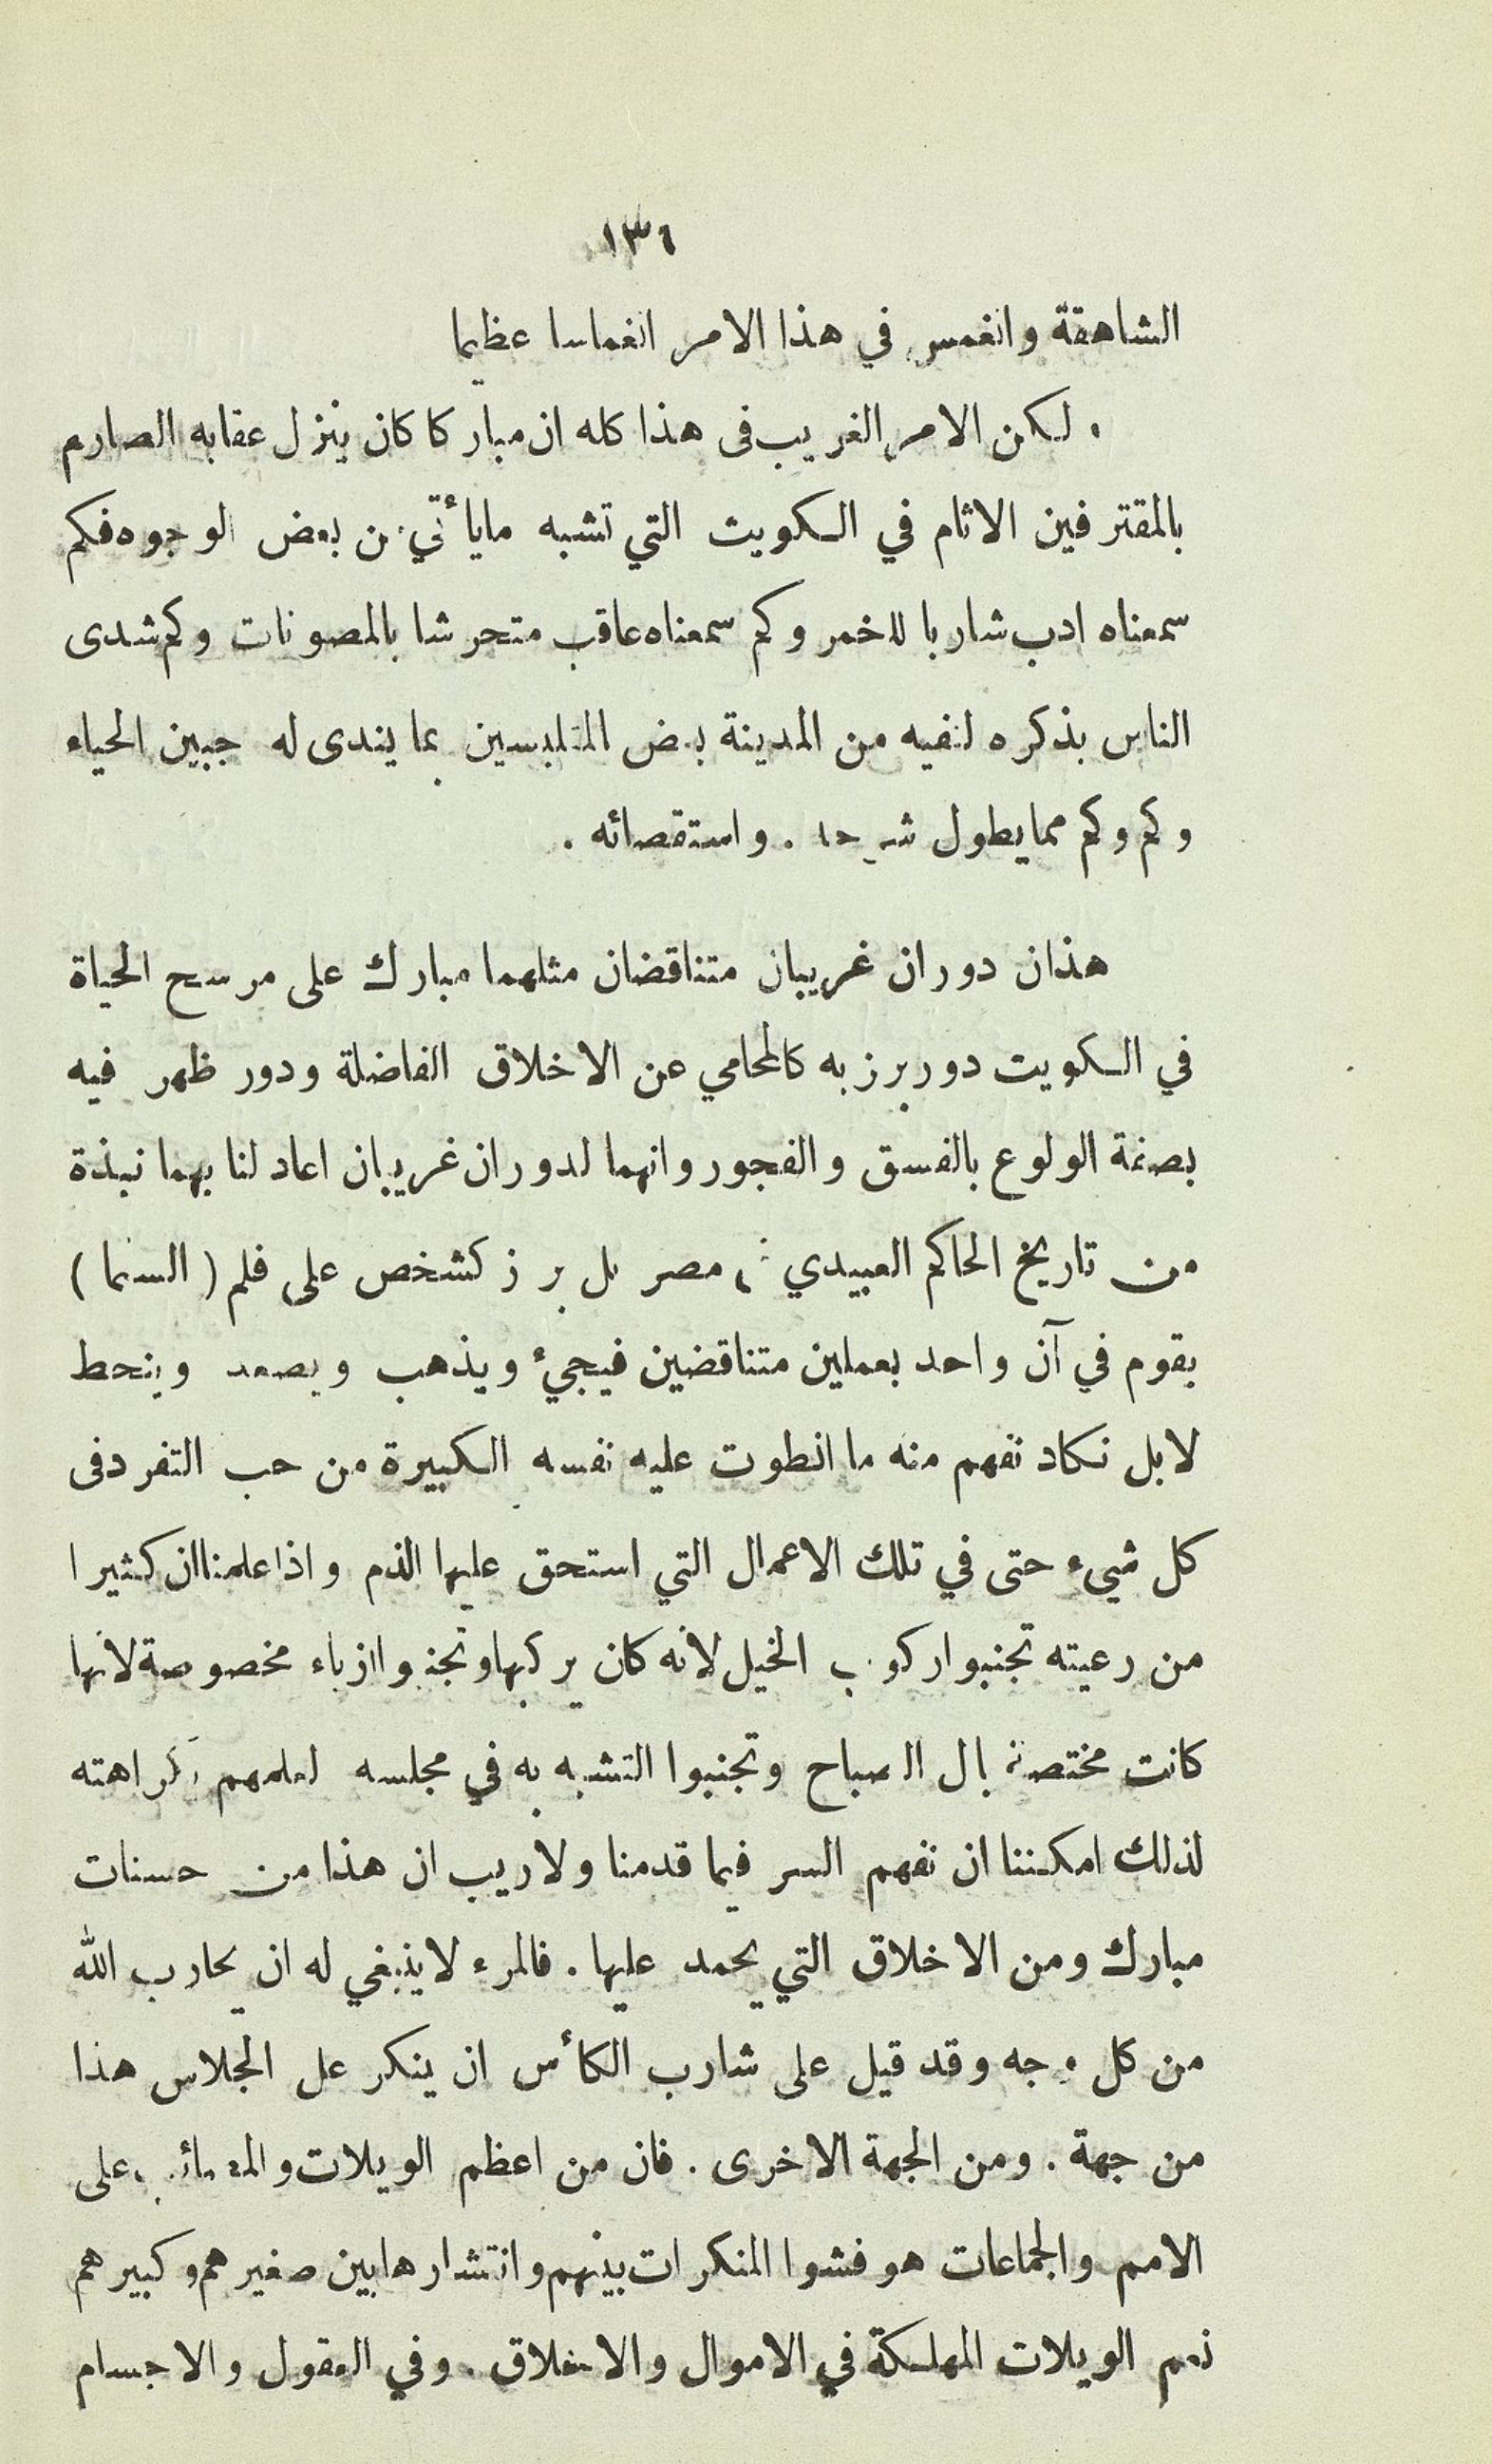 ١٣٦
الشاهقة وانغمس في هذا الامر انغماسا عظيما
ولكن الامر الغريب فى هذا كله ان مباركا كان ينزل عقابه الصارم
بالمقترفين الاثام في الكويت التي تشبه ما يأتي من بعض الوجوه فكم
سمعناه ادب شاربا للخمر وكم سمعناه عاقب متحرشا بالمصونات وكم شدى
الناس بذكره لنفيه من المدينة بعض المتلبسين بما يندى له جبين الحياء
وكم وكم مما يطول شرحه . واستقصائه .
هذان دوران غريبان متناقضان مثلهما مبارك على مرسح الحياة
في الكويت دور برز به كالمحامي عن الاخلاق الفاضلة ودور ظهر فيه
بصفة الولوع بالفسق والفجور وانهما لدوران غريبان اعاد لنا بهما نبذة
من تاريخ الحاكم العبيدي في مصر بل برز كشخص على فلم ( السنما )
يقوم في آن واحد بعملين متناقضين فيجيء ويذهب ويصعد وينحط
لابل نكاد نفهم منه ما انطوت عليه نفسه الكبيرة من حب التفرد فى
كل شيء حتى في تلك الاعمال التي استحق عليها الذم واذا علمنا ان كثيرا
من رعيته تجنبوا ركوب الخيل لانه كان يركبها وتجنبوا ازياء مخصوصة لانها
كانت مختصة بال الصباح وتجنبوا التشبه به في مجلسه لعلمهم كراهته
لذلك امكننا ان نفهم السر فيما قدمنا ولا ريب ان هذا من حسنات
مبارك ومن الاخلاق التي يحمد عليها . فالمرء لا ينبغي له ان يحارب الله
من كل وجه وقد قيل على شارب الكأس ان ينكر على الجلاس هذا
من جهة . ومن الجهة الاخرى . فان من اعظم الويلات والمصائب على
الامم والجماعات هو فشوا المنكرات بينهم وانتشارها بين صغيرهم وكبيرهم
نعم الويلات المهلكة في الاموال والاخلاق . وفي العقول والاجسام